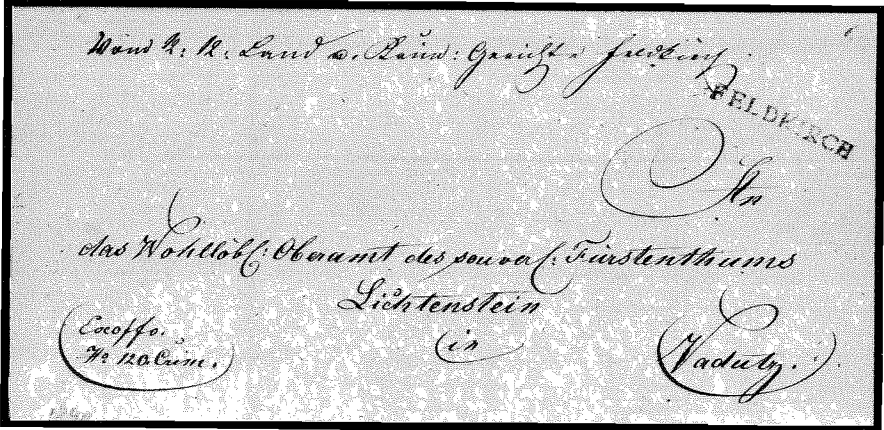 Vom K: K: Land u. Krim: Gericht: Feldkirch
FELDKIRCH
An
das Wohllöbl: Oberamt des souver: Fürstenthums
Lichtenstein
in
Vadutz.
Exoffo.
Nº 120 Crim.